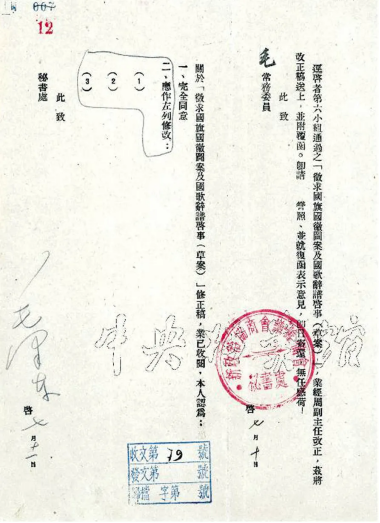 007
12
逕啓者第六小組通過之「徵求國旗國徽圖案及國歌辭譜啓事(草案)」業經周副主任改正,茲將
改正稿送上,並附覆函。卽請 詧照、並就復函表示意見,卽日寄還,無任感荷!
此致
毛 常務委員
新政治協商會議籌備會
秘書處
啓 七月十日
關於「徵求國旗國徽圖案及國歌辭譜啓事(草案)」修正稿,業已收閱,本人認爲:
一、完全同意
二、應作左列修改:
(1)
(2)
(3)
此致
秘書處
毛澤東
啓 七月十一
中央檔案館
收文第 79 號
發文第 號
歸檔 字第 號